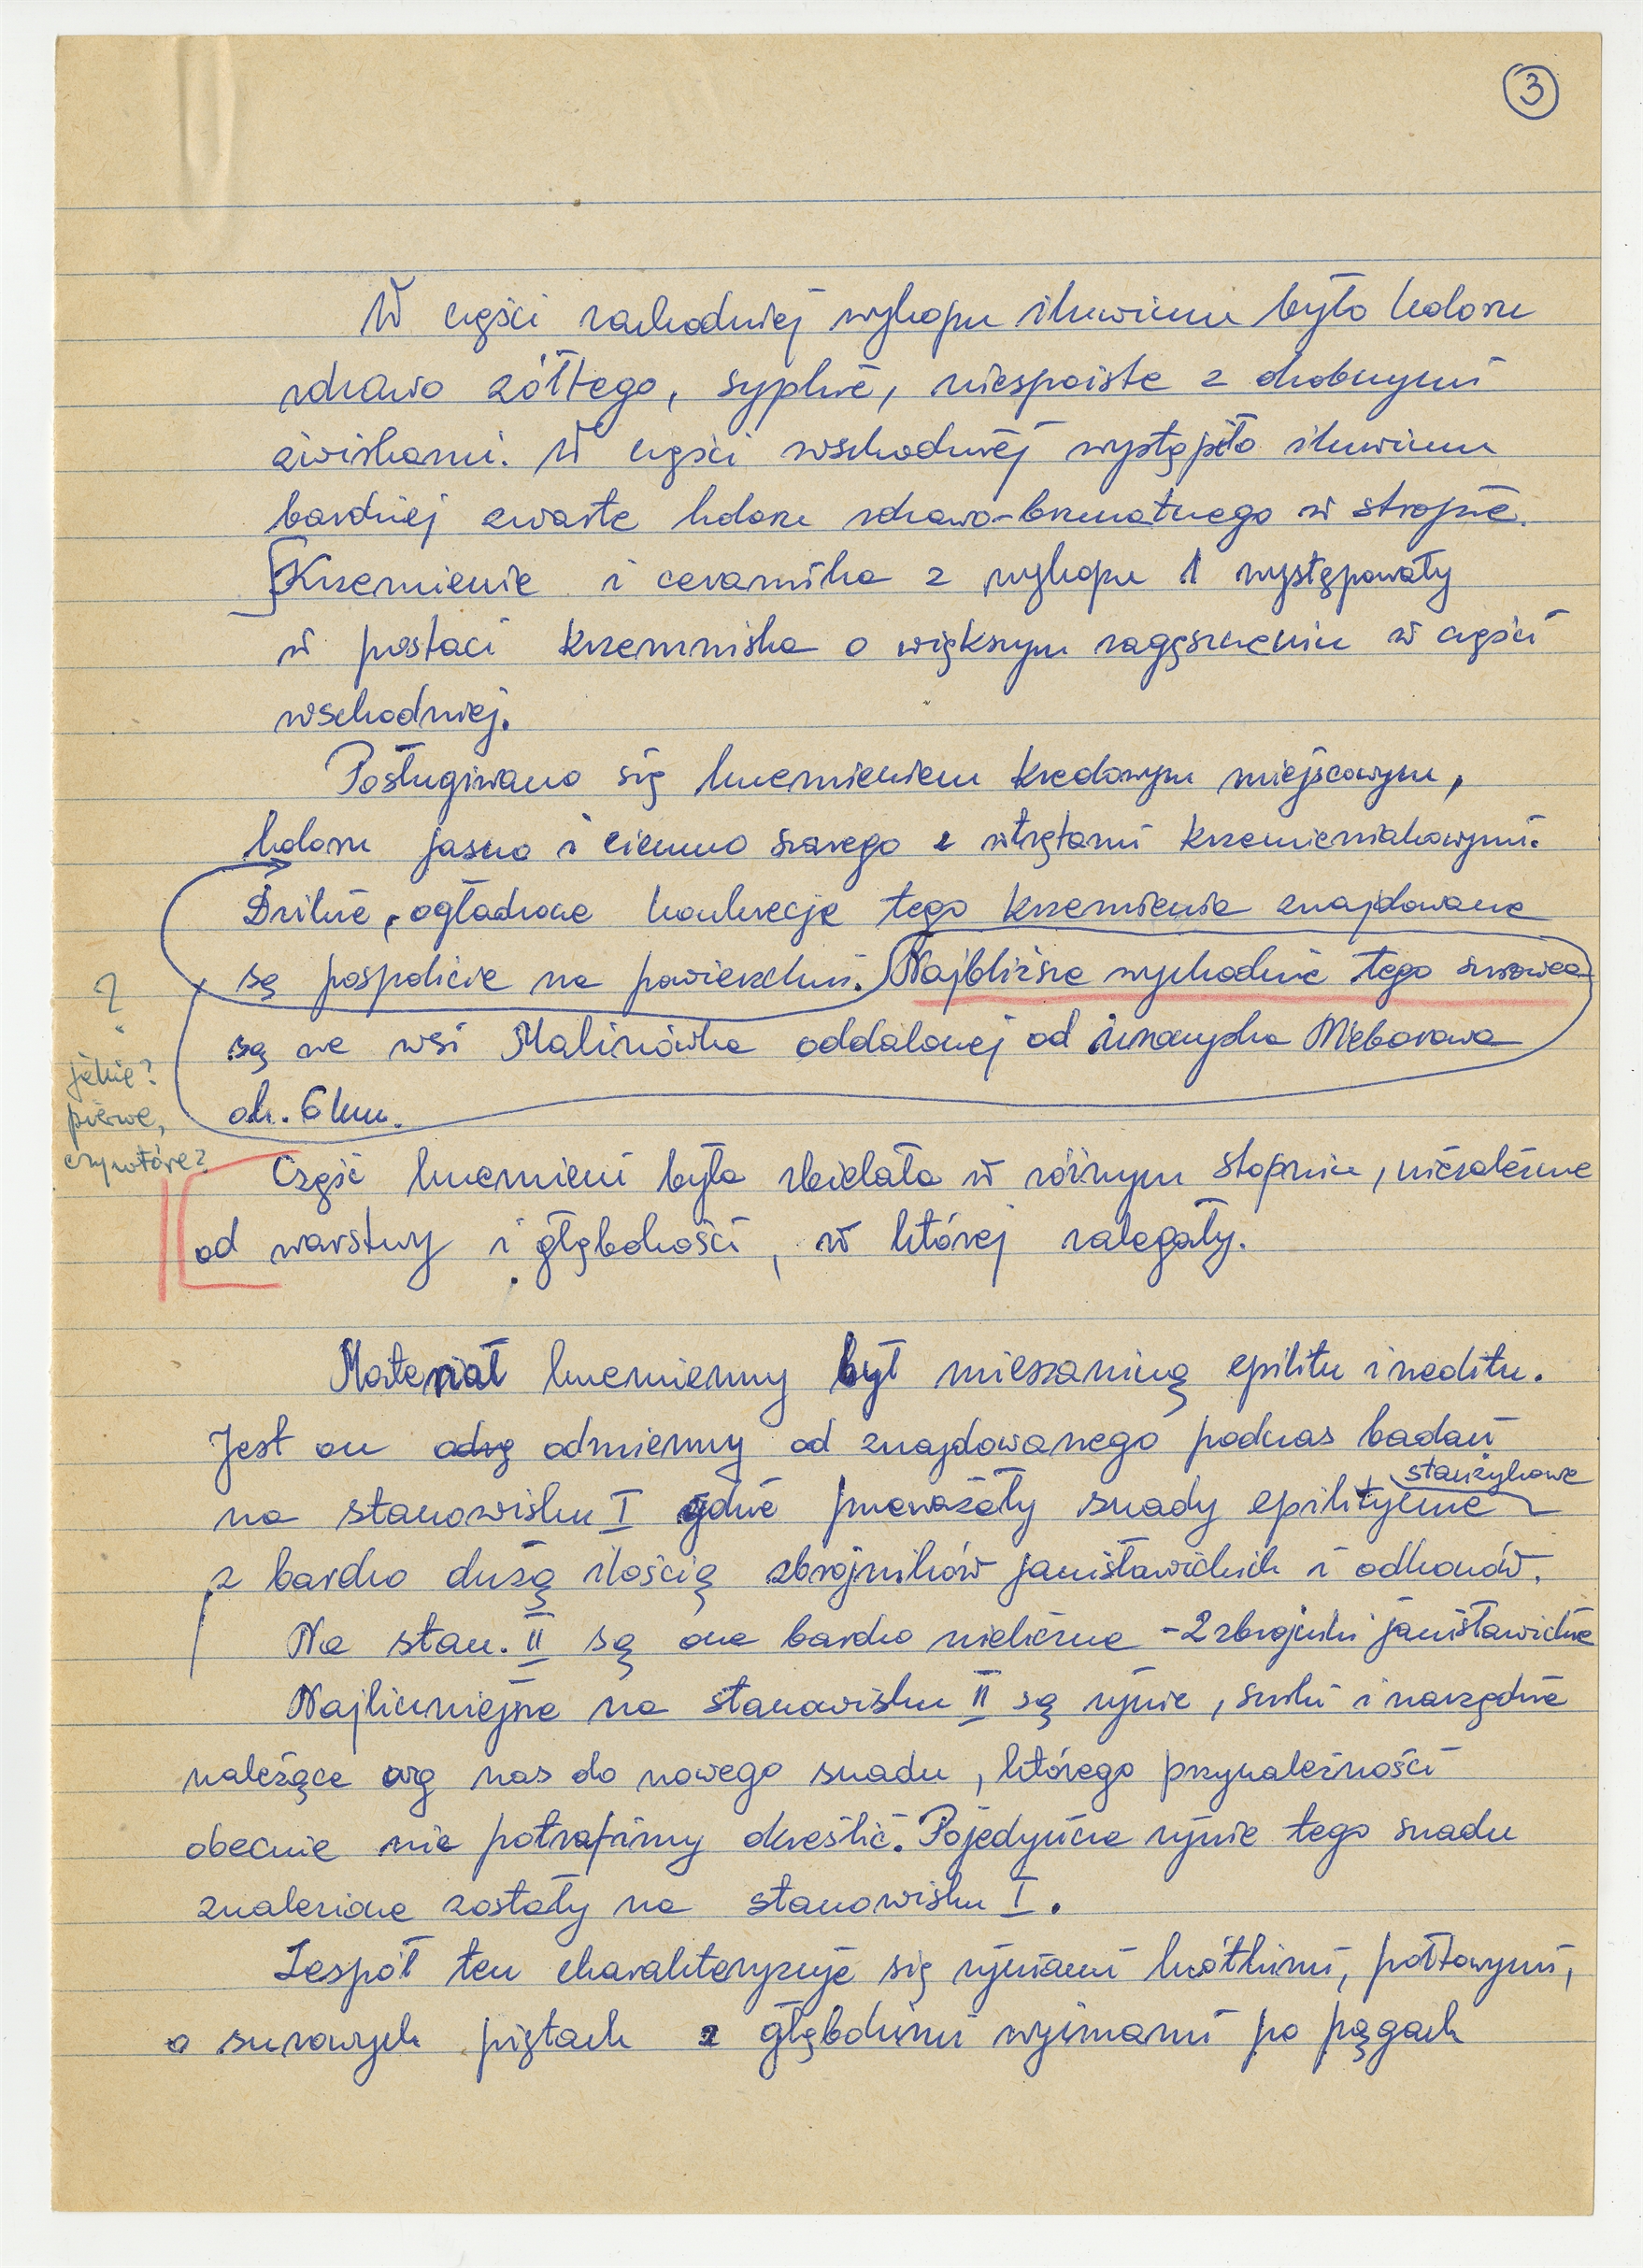 3
W części zachodniej wykopu iluwium było koloru
rdzawo żółtego, sypkie, niespoiste z drobnymi
żwirkami. W części wschodniej wystąpiło iluwium
bardziej zwarte koloru rdzawo-brunatnego w stropie.
Krzemienie i ceramika z wykopu 1 występowały
w postaci krzemniska o większym zagęszczeniu w części
wschodniej.
Posługiwano się krzemieniem kredowym miejscowym,
koloru jasno i ciemno szarego z wtrętami krzemieniakowymi.
Dzikie, ogładzone konkrecje tego krzemienia znajdowane
są pospolicie na powierzchni. Najbliższe wychodnie tego surowca
są we wsi Malinówka oddalonej od uroczyska Nieborowa
ok. 6 km.
?
jakie?
pierwe,
czy wtóre?
Część krzemieni była zbielała w różnym stopniu, niezależnie
od warstwy i głębokości, w której zalegały.
Materiał krzemienny był mieszaniną epilitu i neolitu.
Jest on odmienny od znajdowanego podczas badań
na stanowisku I gdzie przeważały snady epilityczne
staniżykowe
z bardzo dużą ilością zbrojników janisławickich i odłamów.
Na stan. II są one bardzo nieliczne - 2 zbrojniki janisławickie
Najliczniejsze na stanowisku II są rynie, surki i narzędzia
należące wg nas do nowego snadu, którego przynależności
obecnie nie potrafimy określić. Pojedyńcze rynie tego snadu
znalezione zostały na stanowisku I.
Zespół ten charakteryzuje się ryniami krótkimi, połtowymi,
o surowych piętach z głębokimi wyimami po pągach